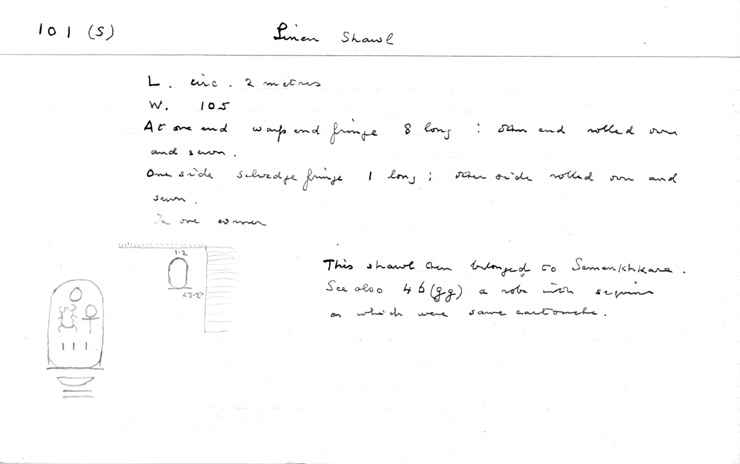 101 (S) Linen Shawl
L. circ. 2 metres
W. 105
At one end warp end fringe 8 long : other end rolled over
and sewn.
One side selvedge fringe 1 long ; other side rolled over and
sewn.
In one corner
1.2
This shawl then belonged to Semenkhkara.
See also 46(gg) a robe with sequins
on which were same cartouche.